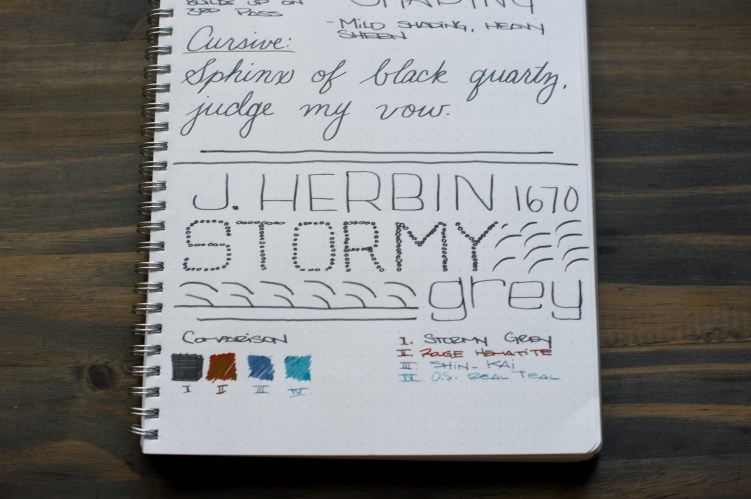 BUILDS UP ON
3RD PASS
SHADING
- MILD SHADING, HEAVY
SHEEN
Cursive:
Sphinx of black quartz,
judge my vow.
J. HERBIN 1670
STORMY
grey
COMPARISON
I II III IV
I. STORMY GREY
II. ROUGE HEMATITE
III. SHIN-KAI
IV. D.S. REAL TEAL